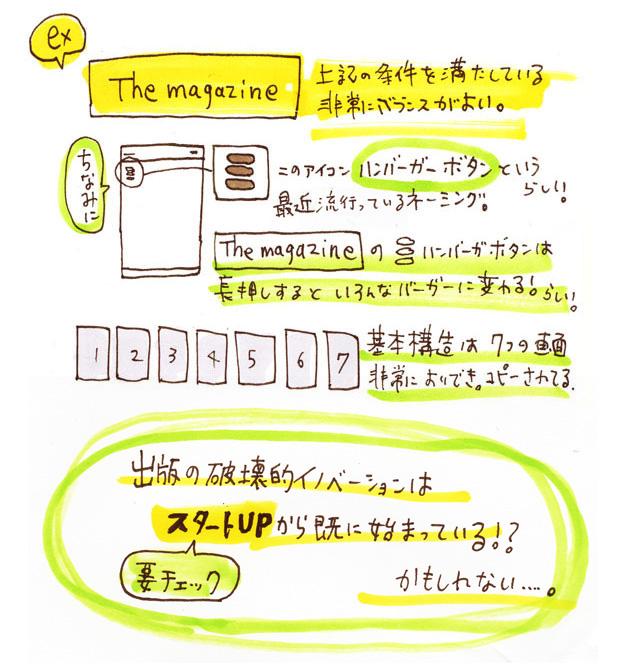 ex
The magazine
上記の条件を満たしている
非常にバランスがよい。
ちなみに
このアイコン ハンバーガーボタン という
らしい!
最近流行っているネーミング。
The magazine の ハンバーガボタンは
長押しすると いろんなバーガーに変わる!らしい!
1 2 3 4 5 6 7
基本構造は 7つの画面
非常によいでき。コピーされてる。
出版の破壊的イノベーションは
スタートUPから既に始まっている!?
要チェック
かもしれない....。